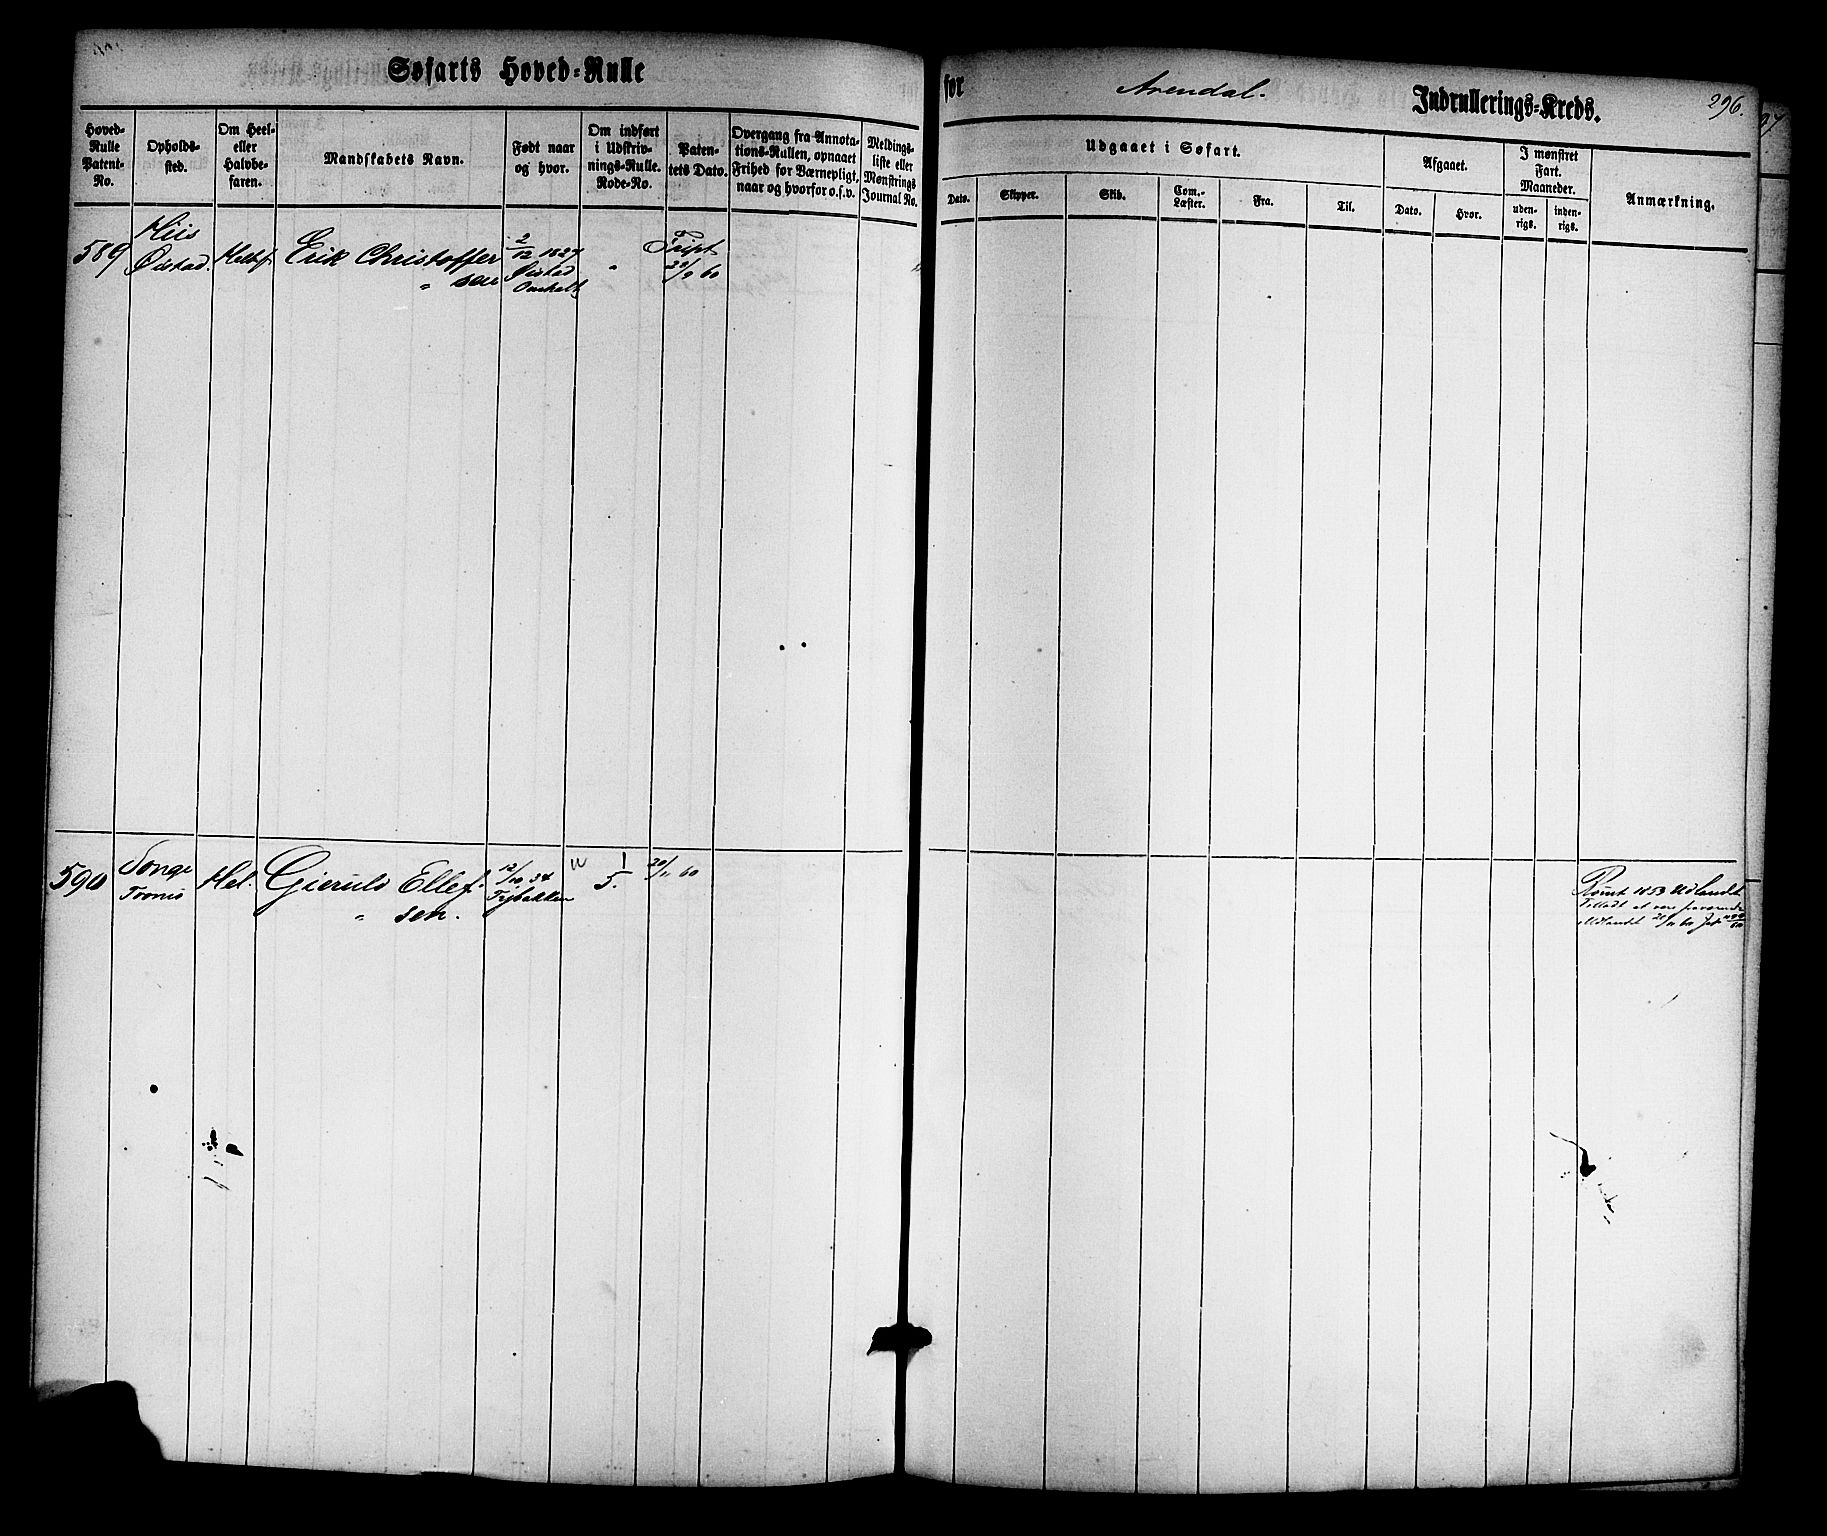 Søfarts Hoved-Rulle
for Arendal. Indrullerings-Kreds. 296.
Hoved-
Rulle
Patent-
No.
Opholds-
sted.
Om Heel-
eller
Halvbe-
faren.
Mandskabets Navn.
Født naar
og hvor.
Om indført
i Udskriv-
nings-Rulle.
Rode-No.
Paten-
tets Dato.
Overgang fra Annota-
tions-Rullen, opnaaet
Frihed for Værnepligt,
naar og hvorfor o.s.v.
Meldings-
liste eller
Mønstrings
Journal No.
Udgaaet i Søfart.
Dato.
Skipper.
Skib.
Com.-
Læster.
Fra.
Til.
Afgaaet.
Dato.
Hvor.
I mønstret
Fart.
Maaneder.
uden-
rigs.
inden-
rigs.
Anmærkning.
589
Øiestad.
Erik Christoffer
" sen
2/12 1827
Øiestad
"
20/9 60
590
Songe
Tromø
Hel.
Gieruld Ellef-
" sen.
12/10 34
1
5.
20/11 60
Rømt 1853 Udlandet
Tilladt at være fraværende
i Udlandet 20/11 60